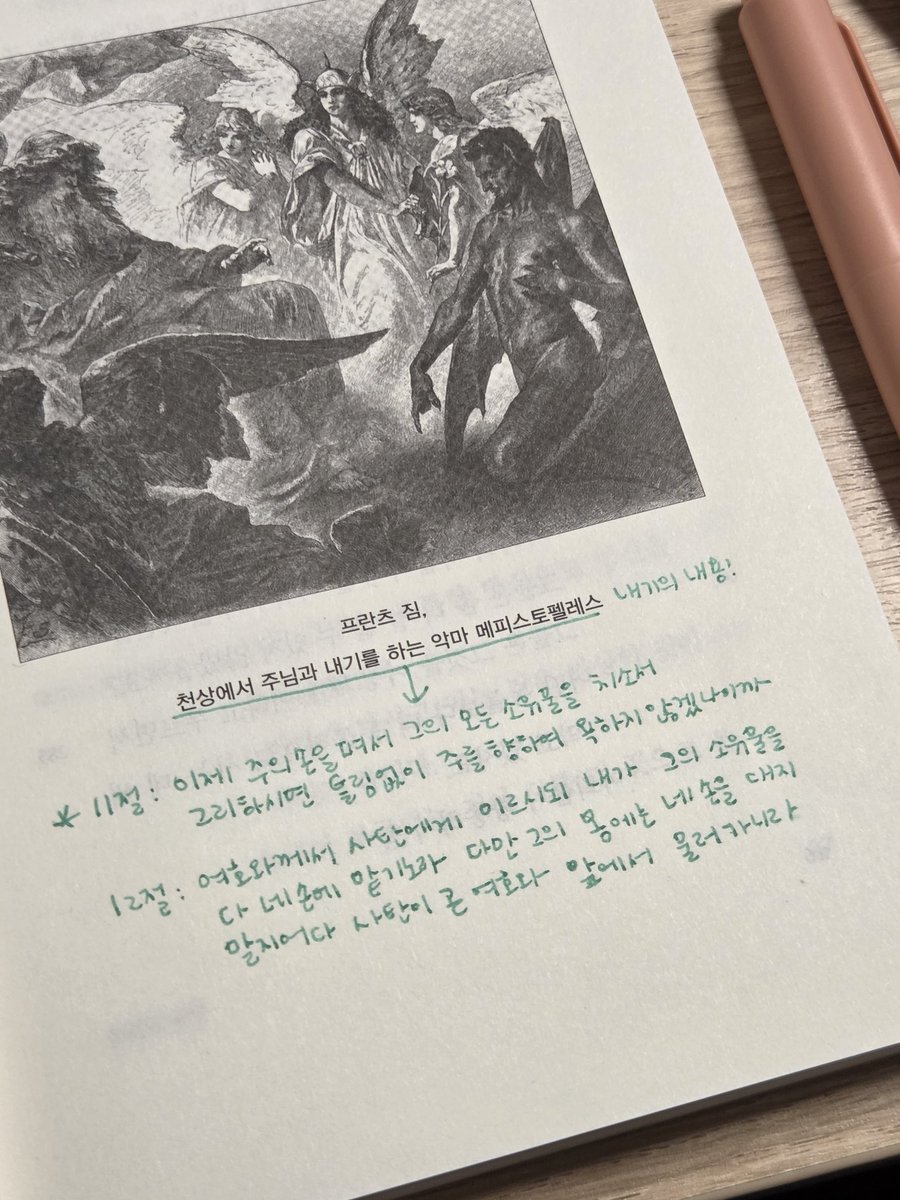 프란츠 짐,
천상에서 주님과 내기를 하는 악마 메피스토펠레스 내기의 내용!
* 11절: 이제 주의 손을 펴서 그의 모든 소유물을 치소서
그리하시면 틀림없이 주를 향하여 욕하지 않겠나이까
12절: 여호와께서 사탄에게 이르시되 내가 그의 소유물을
다 네 손에 맡기노라 다만 그의 몸에는 네 손을 대지
말지어다 사탄이 곧 여호와 앞에서 물러가니라